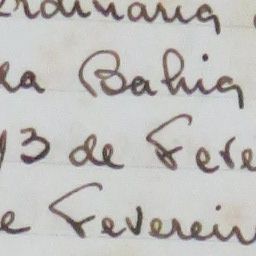 erdinaria
da Bahia
13 de Feve
e Fevereir